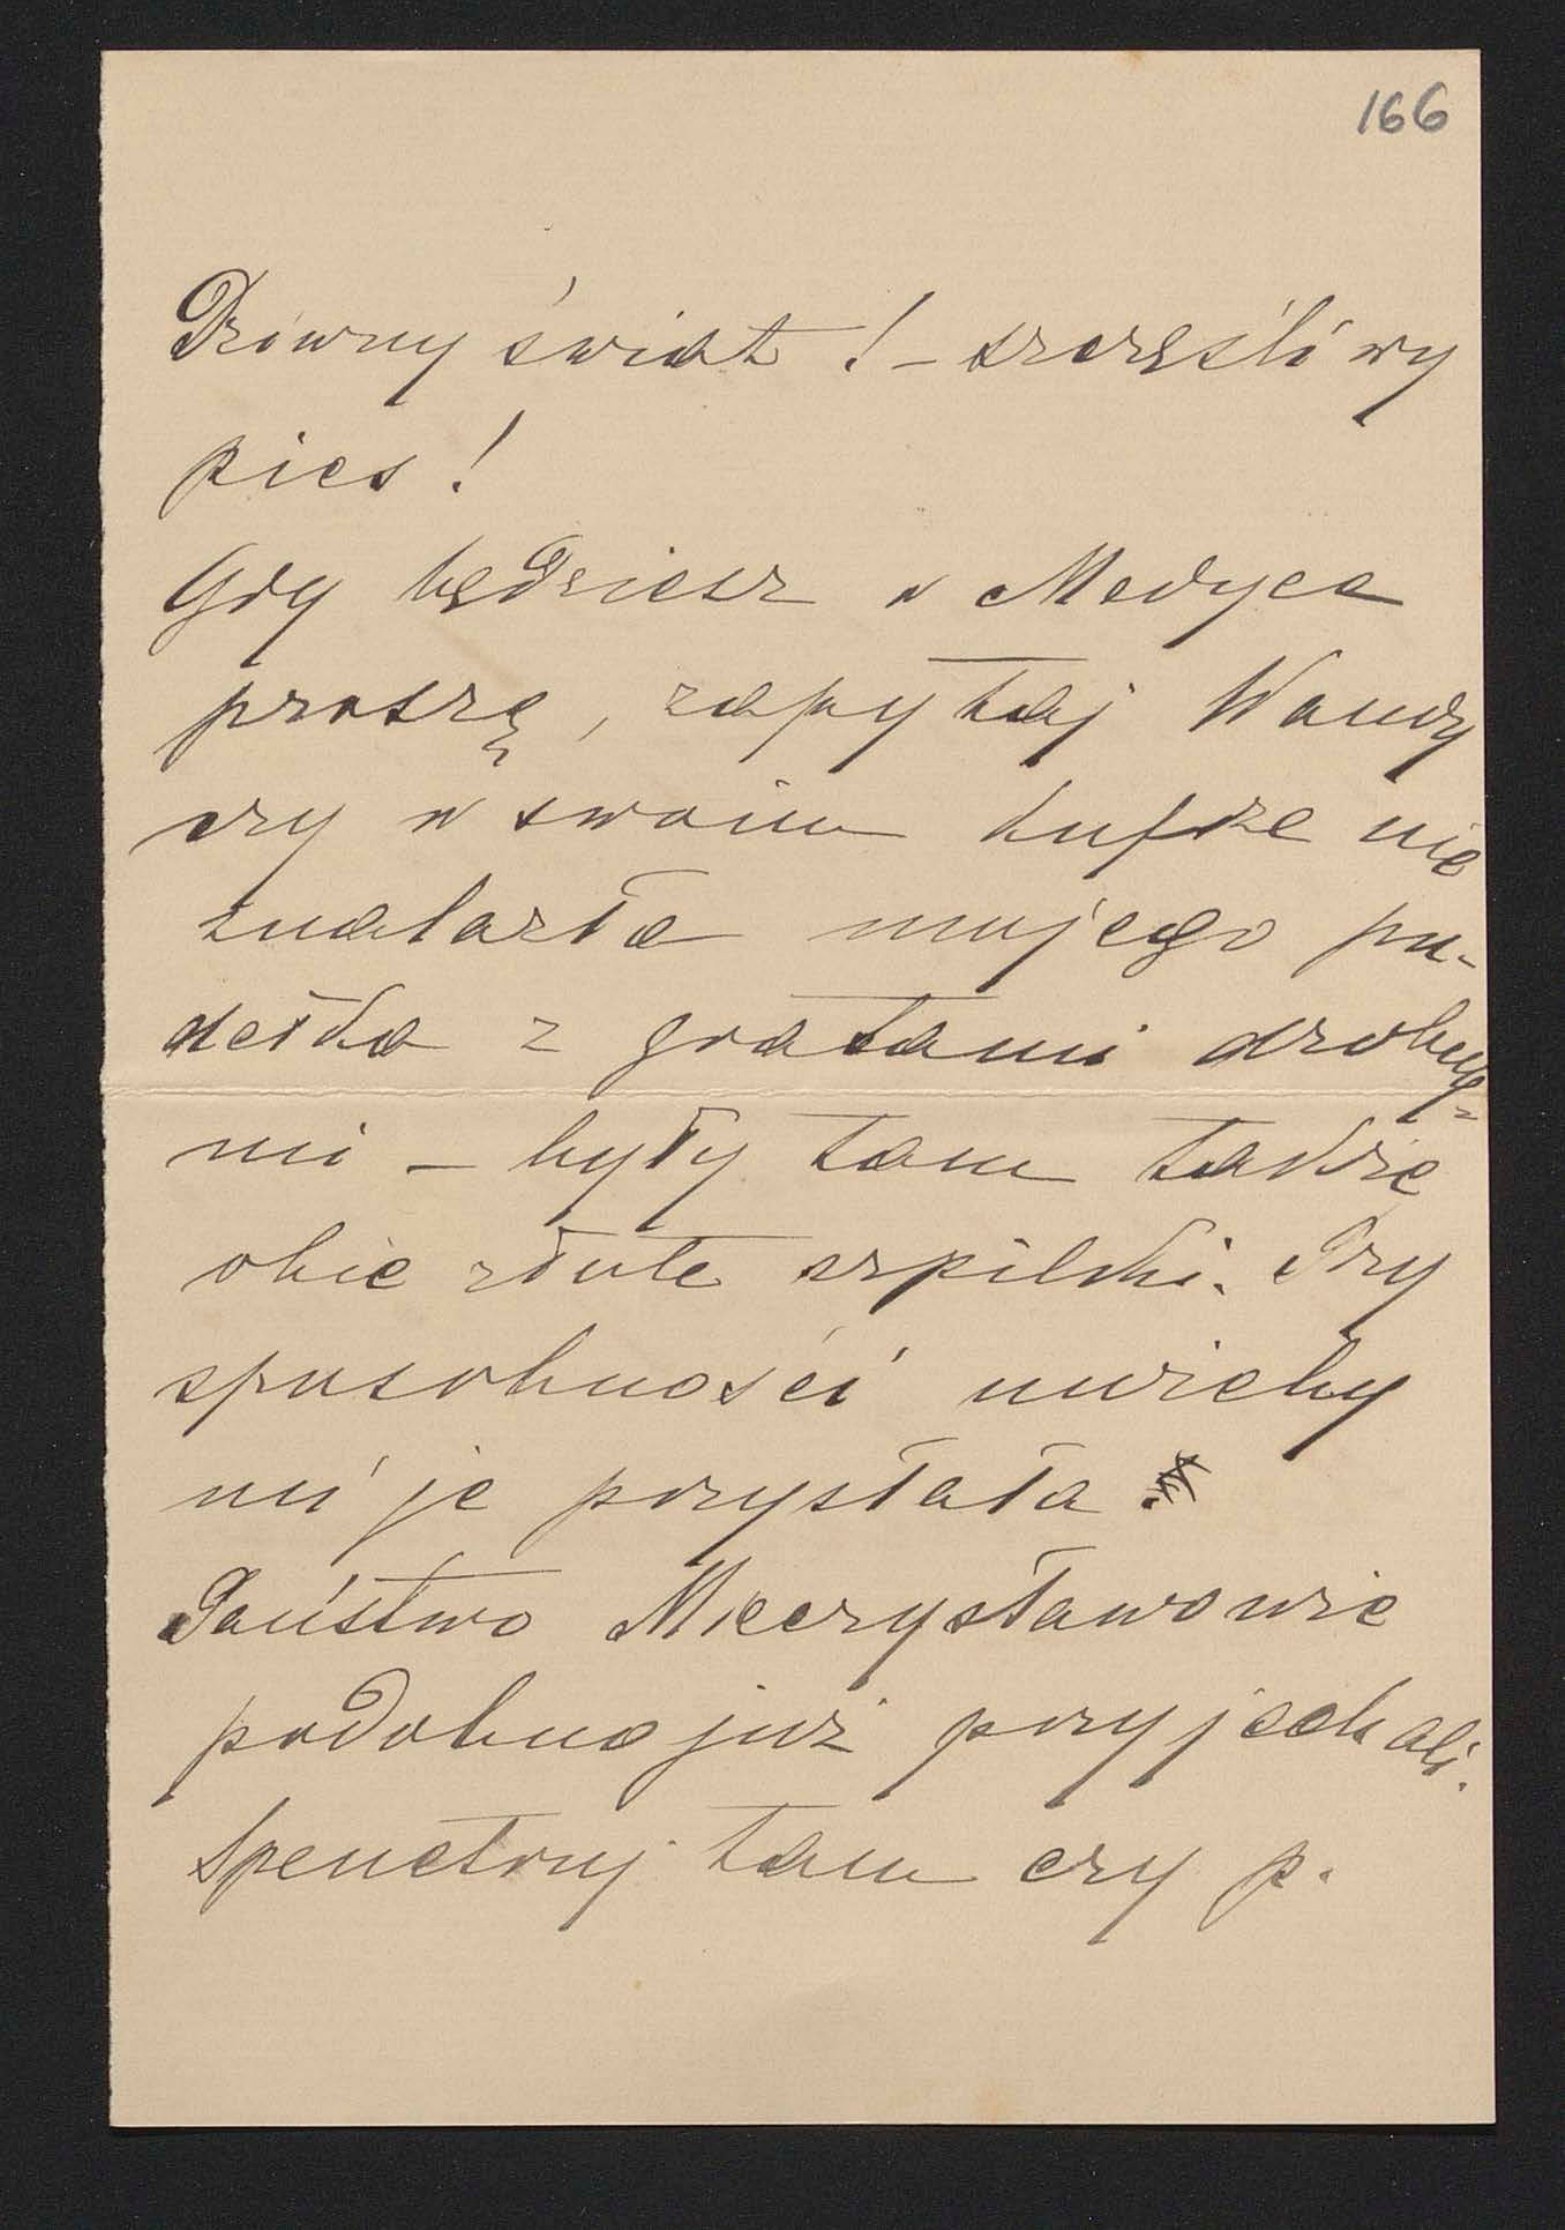 166
Dziwny świat! – szczęśliwy
pies!
Gdy będziesz w Medyce
proszę, zapytaj Wandy
czy w swoim kufrze nie
znalazła mojego pu-
dełka z gratami drobny-
mi – były tam także
obie złote szpilki. Przy
sposobności możeby
mi je przysłała.
Państwo Mieczysławowie
podobno już przyjechali.
Spenetruj tam czy p.